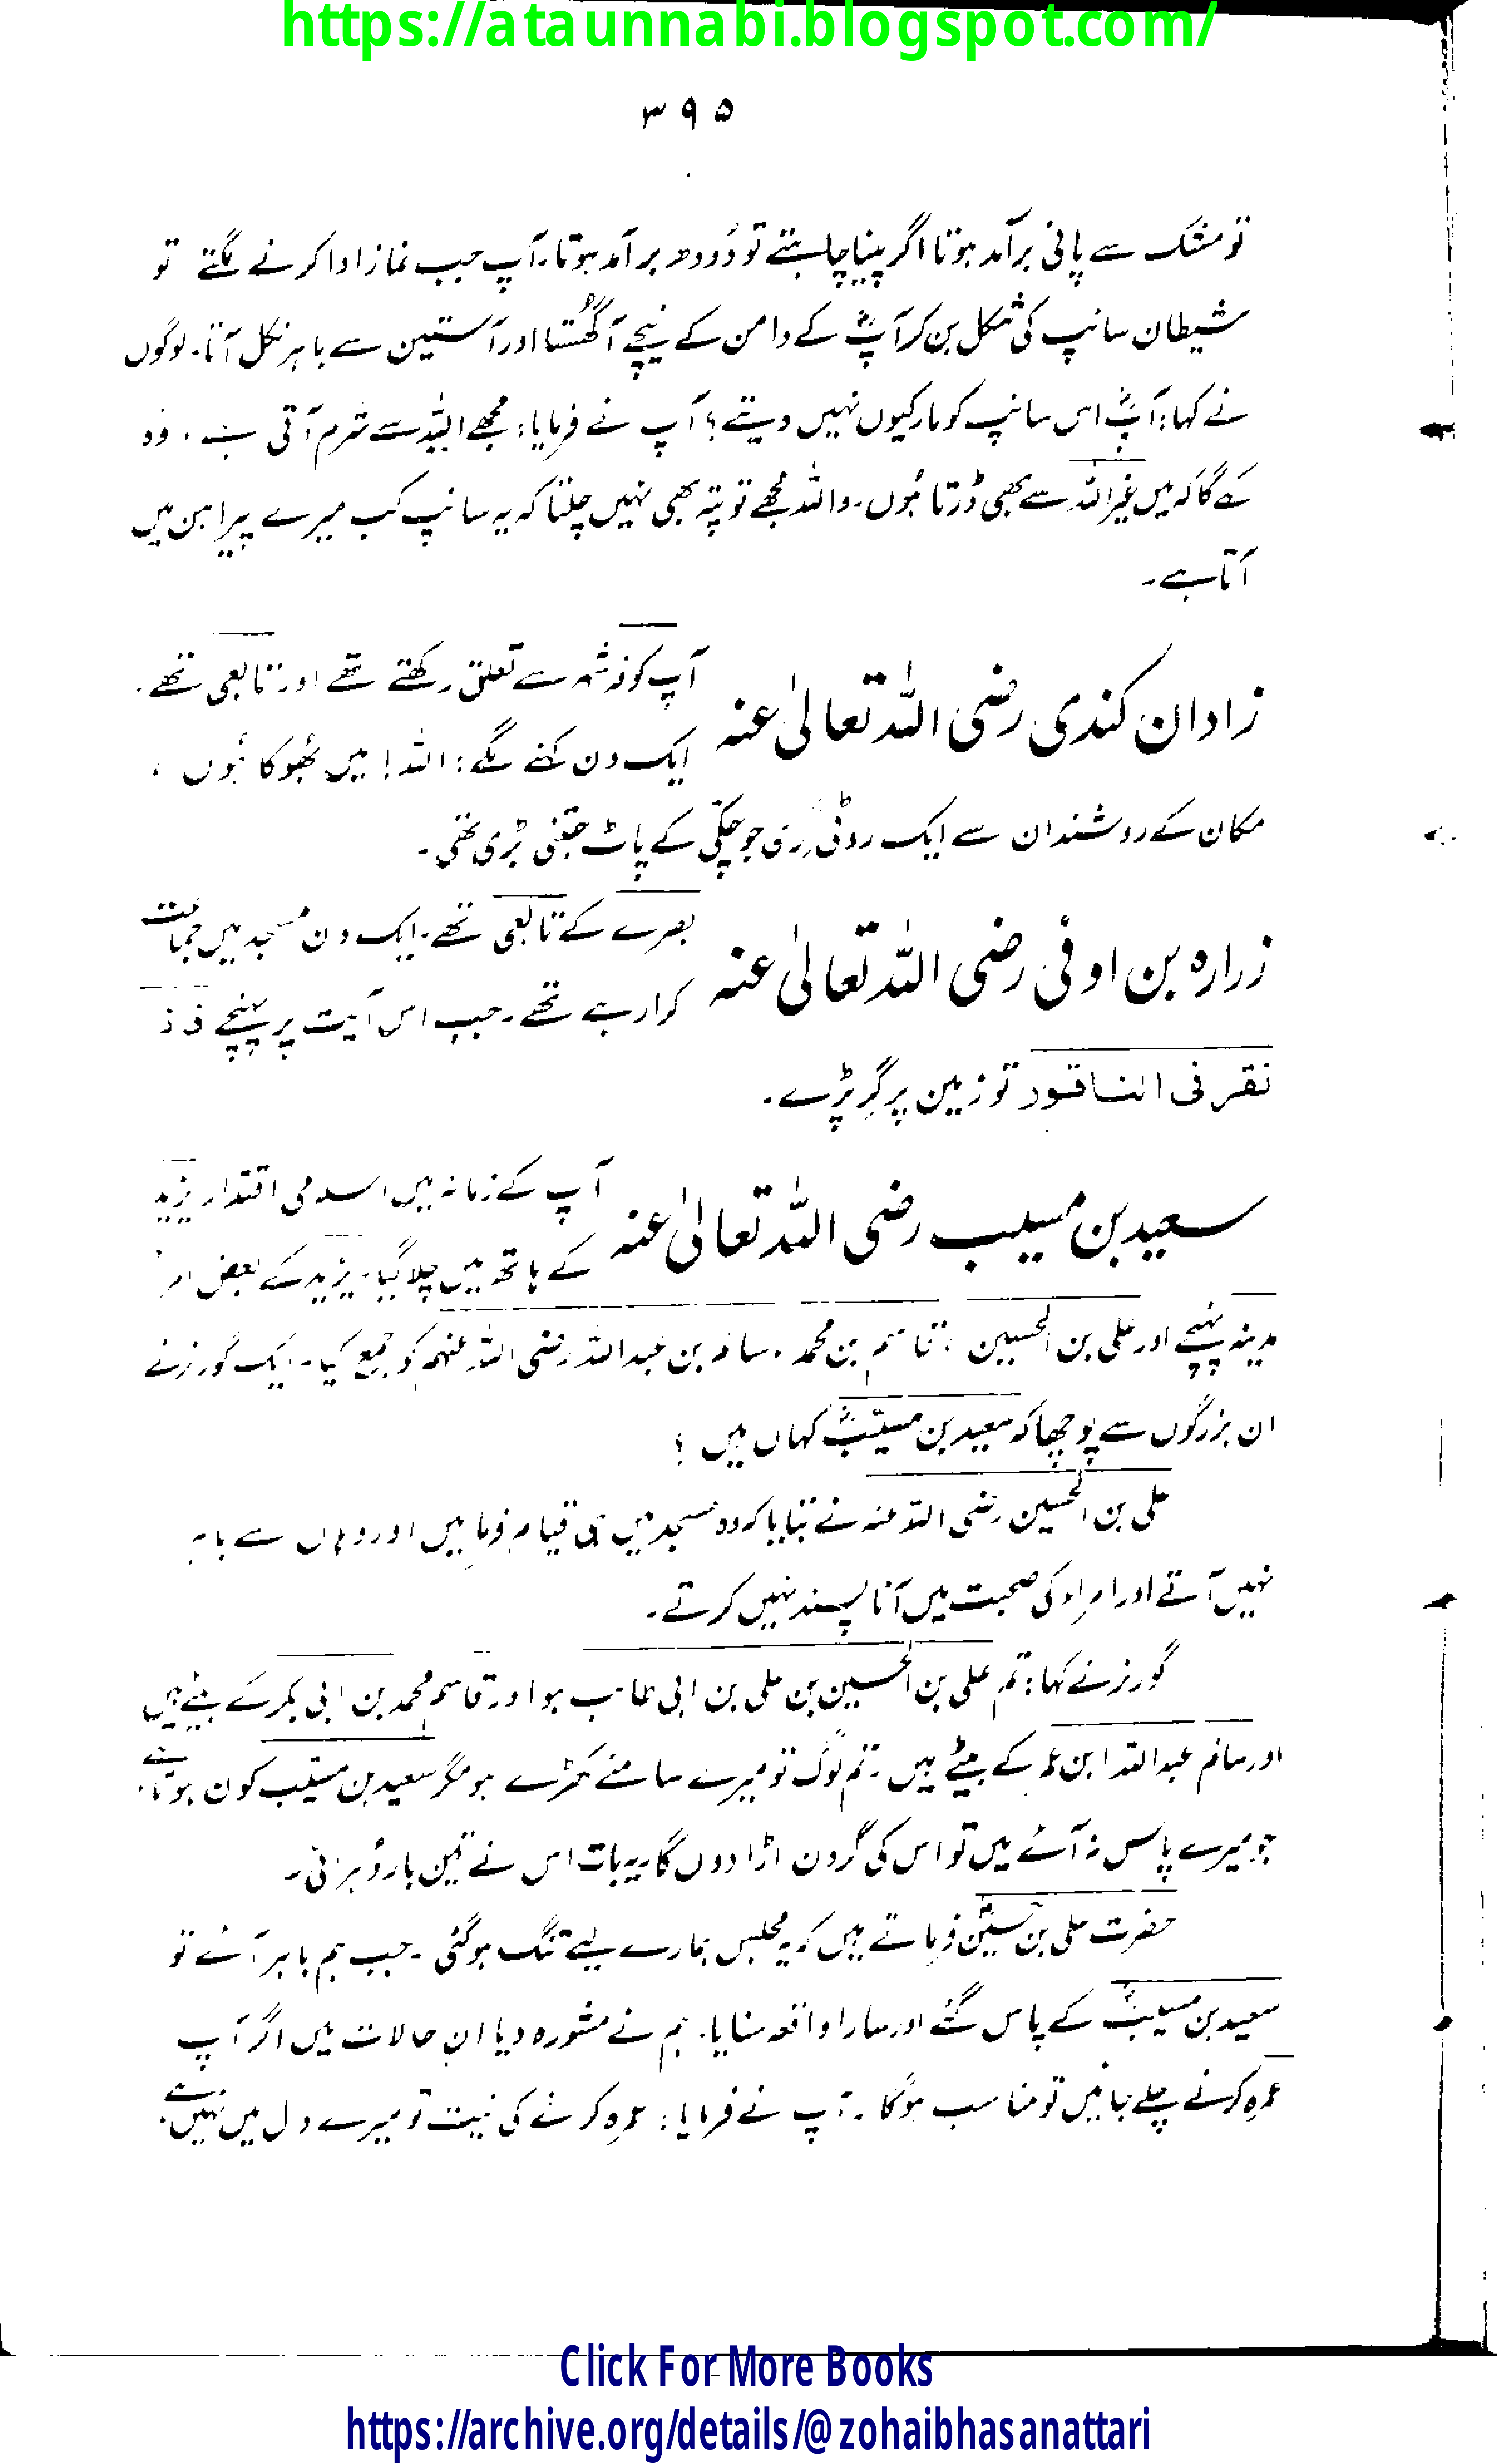 https://ataunnabi.blogspot.com/
۳۹۵
تو مشک سے پانی برآمد ہوتا اگر پینا چاہتے تو دُودھ برآمد ہوتا۔ آپ جب نماز ادا کرنے لگتے تو
شیطان سانپ کی شکل بن کر آپؓ کے دامن کے نیچے آگھُستا اور آستین سے باہر نکل آتا۔ لوگوں
نے کہا: آپؓ اس سانپ کو مار کیوں نہیں دیتے؟ آپ نے فرمایا: مجھے اللہ سے شرم آتی ہے، وُہ
کہے گا کہ میں غیر اللہ سے بھی ڈرتا ہُوں۔ واللہ مجھے تو پتہ بھی نہیں چلتا کہ یہ سانپ کب میرے پیراہن میں
آتا ہے۔
زادان کندی رضی اللہ تعالیٰ عنہ
آپ کوفہ شہر سے تعلق رکھتے تھے اور تابعی تھے۔
ایک دن کہنے لگے: اللہ! میں بھُوکا ہُوں،
مکان کے روشندان سے ایک روٹی گری جو چکّی کے پاٹ جتنی بڑی تھی۔
زرارہ بن اوفٰی رضی اللہ تعالیٰ عنہ
بصرے کے تابعی تھے۔ ایک دن مسجد میں جماعت
کرا رہے تھے۔ جب اس آیت پر پہنچے فاذا
نقر فی الناقور تو زمین پر گِر پڑے۔
سعید بن مسیب رضی اللہ تعالیٰ عنہ
آپ کے زمانہ میں اسلامی اقتدار یزید
کے ہاتھ میں چلا گیا۔ یزید کے بعض امراء
مدینہ پہنچے اور علی بن الحسین، قاسم بن محمد، سالم بن عبداللہ رضی اللہ عنہم کو جمع کیا۔ ایک گورنر نے
ان بزرگوں سے پوچھا کہ سعید بن مسیّبؓ کہاں ہیں؟
علی بن الحسین رضی اللہ عنہ نے بتایا کہ وہ مسجد میں ہی قیام فرما ہیں اور وہاں سے باہر
نہیں آتے اور امراء کی صحبت میں آنا پسند نہیں کرتے۔
گورنر نے کہا: تم علی بن الحسین بن علی بن ابی طالب ہو اور قاسم محمد بن ابی بکر کے بیٹے ہیں
اور سالم عبداللہ ابن عمر کے بیٹے ہیں۔ تم لوگ تو میرے سامنے کھڑے ہو مگر سعید بن مسیّب کون ہوتا ہے
جو میرے پاس نہ آئے میں تو اس کی گردن اڑا دوں گا۔ یہ بات اس نے تین بار دُہرائی۔
حضرت علی بن حسینؓ فرماتے ہیں کہ یہ مجلس ہمارے لیے تنگ ہو گئی۔ جب ہم باہر آئے تو
سعید بن مسیبؓ کے پاس گئے اور سارا واقعہ سنایا۔ ہم نے مشورہ دیا ان حالات میں اگر آپ
عمرہ کرنے چلے جائیں تو مناسب ہوگا۔ آپ نے فرمایا: عمرہ کرنے کی نیت تو میرے دل میں نہیں ہے۔
Click For More Books
https://archive.org/details/@zohaibhasanattari